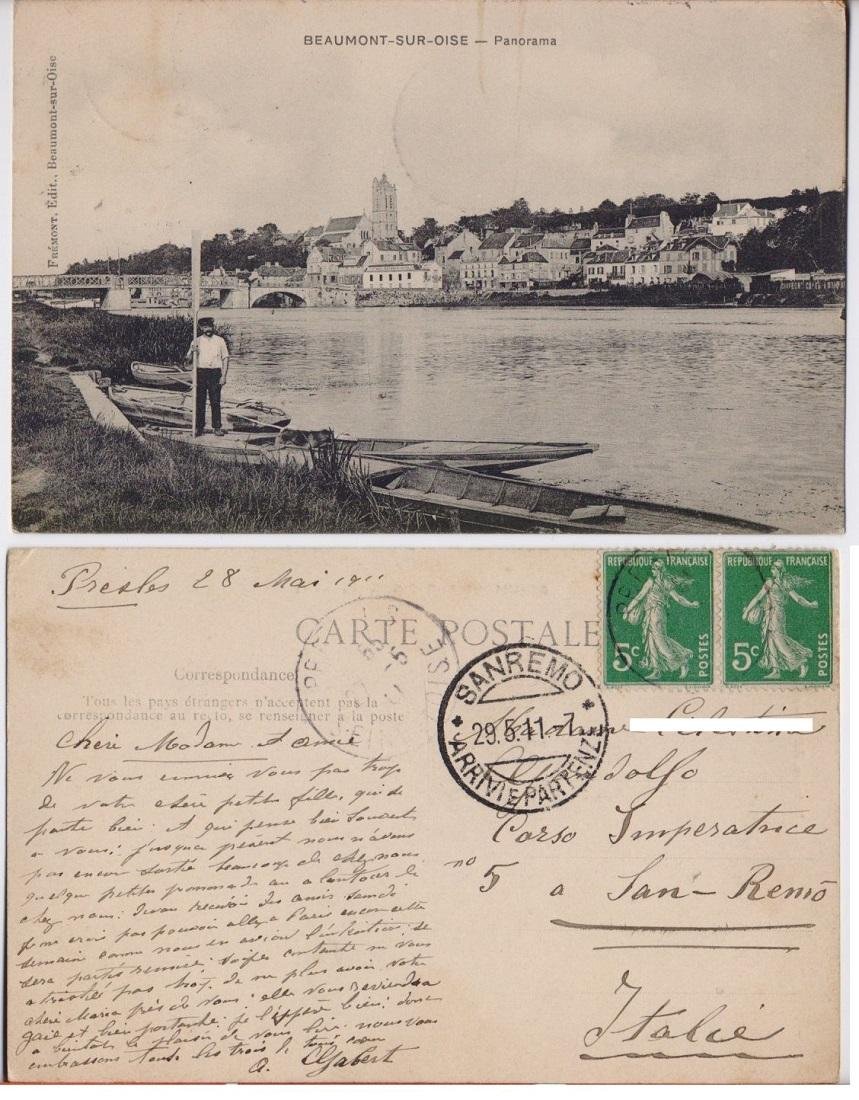 BEAUMONT-SUR-OISE — Panorama
FRÉMONT, Édit., Beaumont-sur-Oise
Presles 28 Mai 1911
CARTE POSTALE
REPUBLIQUE FRANÇAISE
5c
POSTES
REPUBLIQUE FRANÇAISE
5c
POSTES
Correspondance
Tous les pays étrangers n'acceptent pas la
correspondance au recto, se renseigner à la poste
SANREMO
29.5.11-7
ARRIVI E PARTENZE
OISE
Chère Madame et amie
Ne vous ennuiez vous pas trop
de votre chère petite fille, qui se
porte bien. A qui pense bien souvent
a vous; jusqua présent nous n'avons
pas encore sortie beaucoup de chez nous
quelque petites promenade au alentour de
chez nous: devan recevoir des amis samedi
je ne crois pas pouvoir allez a Paris encore cette
semaine comme nous en avion l'intention; se
sera partie remise. contente ne vous
pas trop de ne plus avoir votre
chère Maria près de vous; elle vous reviendra
gaie et bien portante je l'espère bien; donc
a bientot le plaisir de vous lire. nous vous
embrassons tous les trois de tout cœur
Gabert
Celestina
Corso Imperatrice
no 5 a San-Remo
Italie